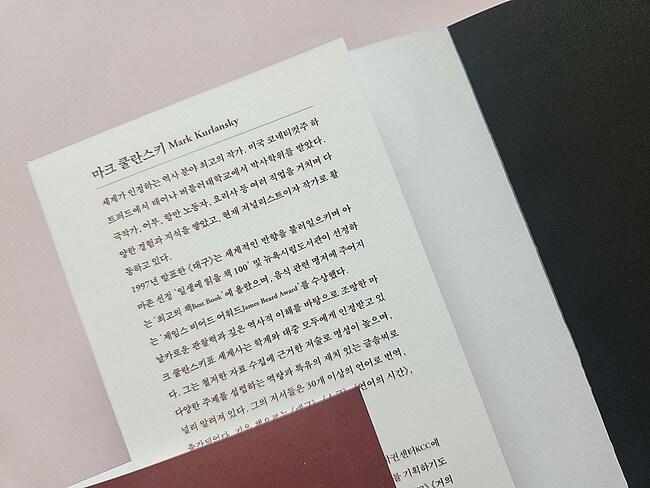 마크 쿨란스키 Mark Kurlansky
세계가 인정하는 역사 분야 최고의 작가. 미국 코네티컷주 하
트퍼드에서 태어나 버틀러대학교에서 박사학위를 받았다.
극작가, 어부, 항만 노동자, 요리사 등 여러 직업을 거치며 다
양한 경험과 지식을 쌓았고, 현재 저널리스트이자 작가로 활
동하고 있다.
1997년 발표한 《대구》는 세계적인 반향을 불러일으키며 아
마존 선정 ‘일생에 읽을 책 100’ 및 뉴욕시립도서관이 선정하
는 ‘최고의 책Best Book’에 올랐으며, 음식 관련 명저에 주어지
는 ‘제임스 비어드 어워드James Beard Award’를 수상했다.
날카로운 관찰력과 깊은 역사적 이해를 바탕으로 조망한 마
크 쿨란스키표 세계사는 학계와 대중 모두에게 인정받고 있
다. 그는 철저한 자료 수집에 근거한 저술로 명성이 높으며,
다양한 주제를 섭렵하는 역량과 특유의 재치 있는 글솜씨로
널리 알려져 있다. 그의 저서들은 30개 이상의 언어로 번역,
《언어의 시간》,
센터KCC에
를 기획하기도
《거의